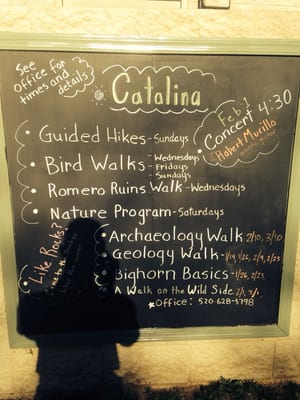 See
office for
times and
details
Catalina
Feb. 1
Concert 4:30
Hobert Murillo
Guided Hikes - Sundays
Bird Walks - Wednesdays
- Fridays
Sundays
Romero Ruins Walk - Wednesdays
Nature Program - Saturdays
Archaeology Walk 2/10, 3/10
Geology Walk - 1/19, 1/26, 2/9, 2/23
Bighorn Basics - 1/26, 2/23
A Walk on the Wild Side
*Office: 520-628-5798
Like Rocks?